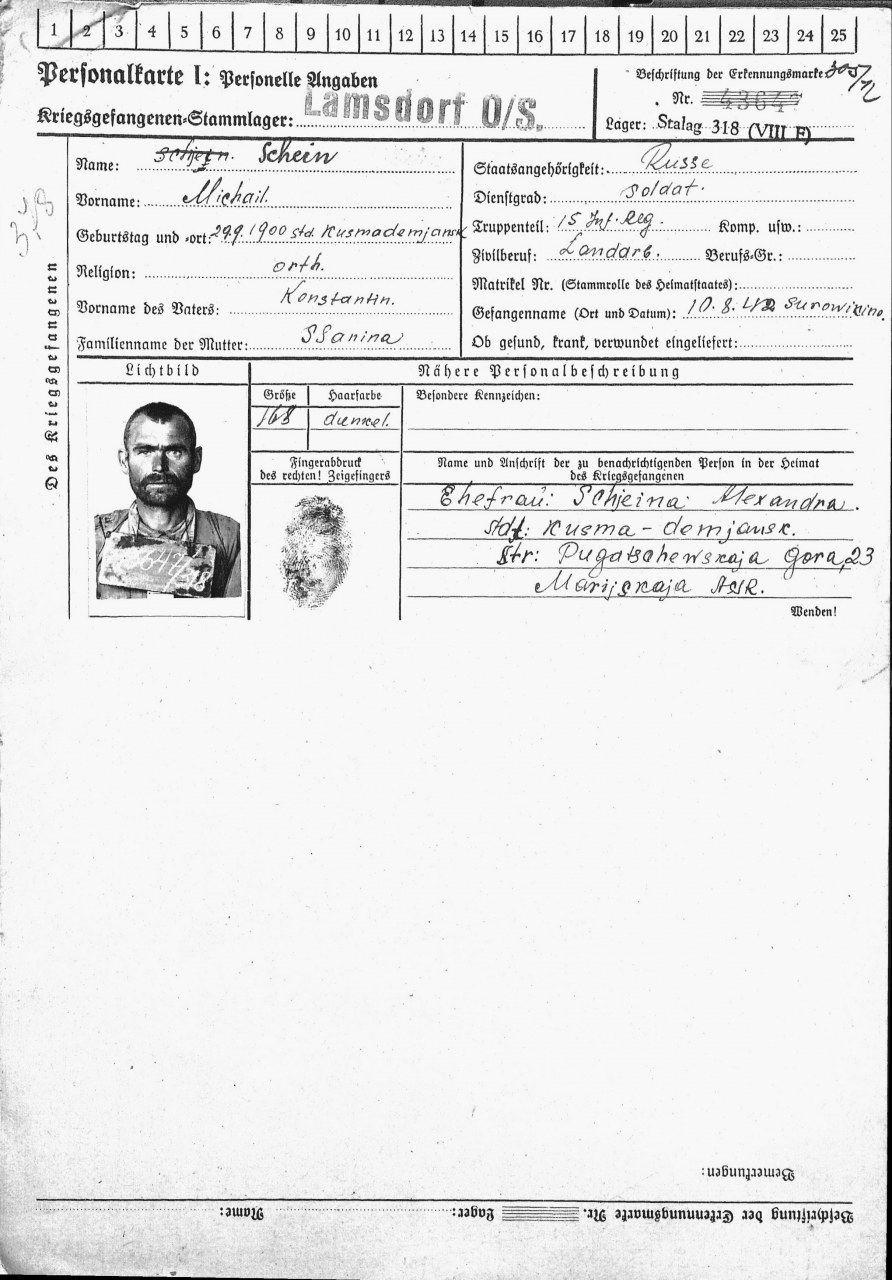 1 2 3 4 5 6 7 8 9 10 11 12 13 14 15 16 17 18 19 20 21 22 23 24 25
Personalkarte I: Personelle Angaben
Kriegsgefangenen-Stammlager: Lamsdorf O/S.
Beschriftung der Erkennungsmarke
Nr. 43647
Lager: Stalag 318 (VIII F)
Des Kriegsgefangenen
Name: Schein
Vorname: Michail.
Geburtstag und -ort: 29.9.1900 std. Kusmademjansk
Religion: orth.
Vorname des Vaters: Konstantin.
Familienname der Mutter: SSanina
Staatsangehörigkeit: Russe
Dienstgrad: Soldat.
Truppenteil: 15 Inf. Reg. Komp. usw.:
Zivilberuf: Landarb. Berufs-Gr.:
Matrikel Nr. (Stammrolle des Heimatstaates):
Gefangenname (Ort und Datum): 10.8.42 Surowikino.
Ob gesund, krank, verwundet eingeliefert:
Lichtbild
Nähere Personalbeschreibung
Größe Haarfarbe Besondere Kennzeichen:
168 dunkel.
Fingerabdruck
des rechten! Zeigefingers
Name und Anschrift der zu benachrichtigenden Person in der Heimat
des Kriegsgefangenen
Ehefrau: Schjeina Alexandra.
std: Kusma-demjansk.
Str: Pugatschewskaja Gora, 23
Marijskaja ASSR.
Wenden!
Bemerkungen:
Beschriftung der Erkennungsmarke Nr. Lager: Name: